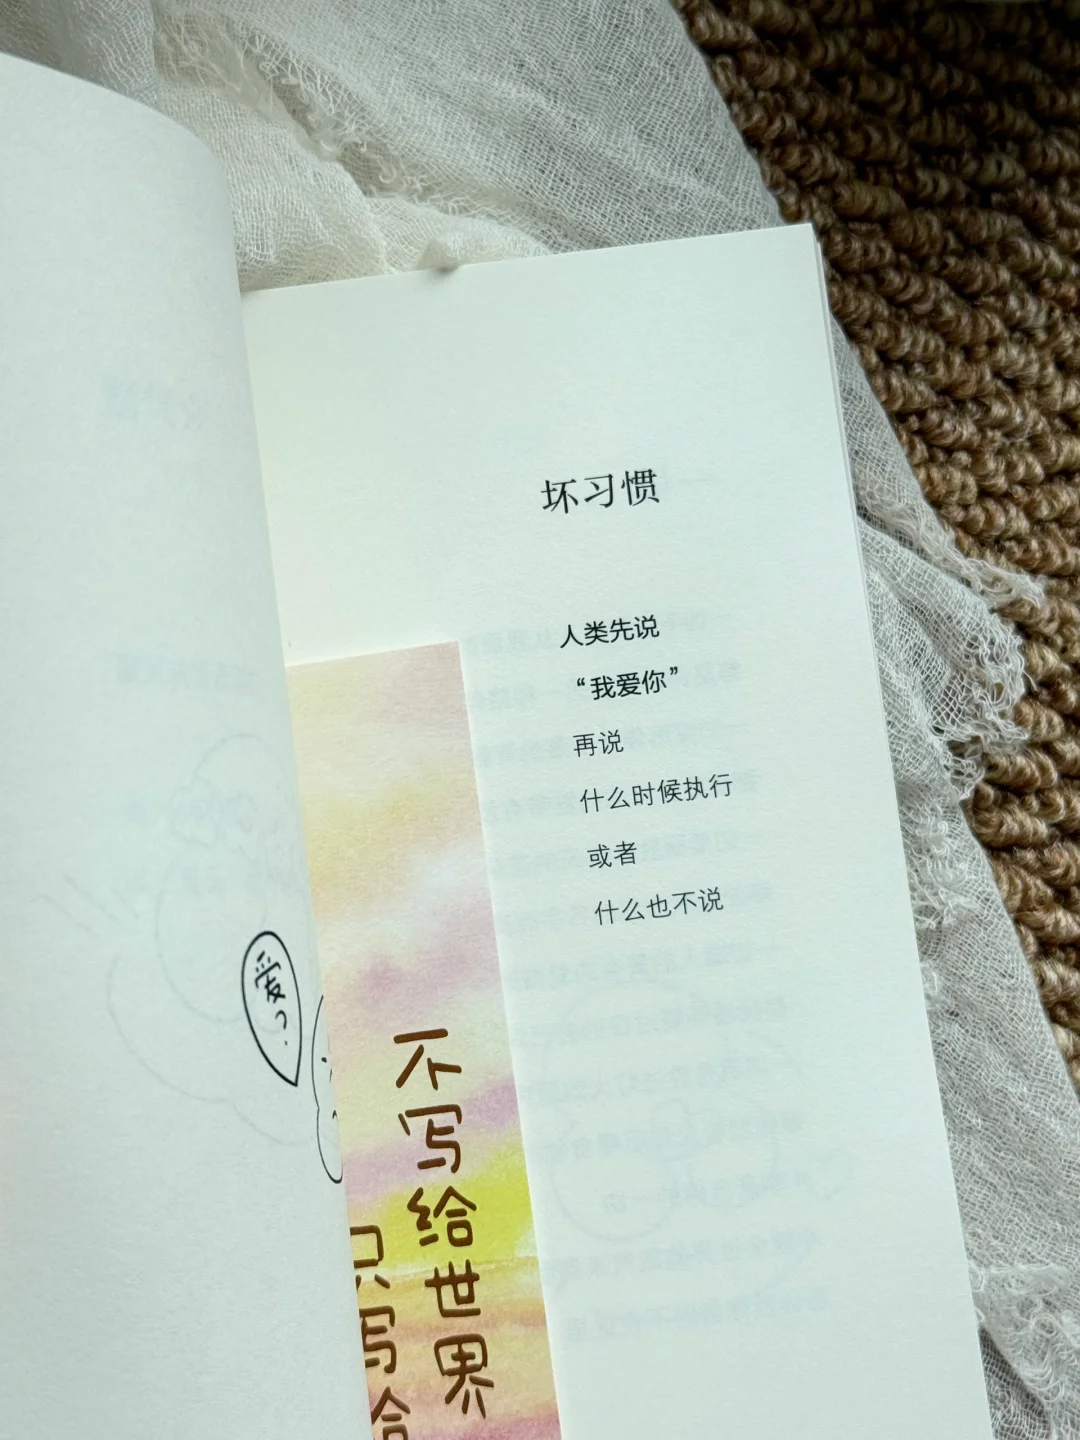 坏习惯
人类先说
“我爱你”
再说
什么时候执行
或者
什么也不说
爱?
不写给世界
只写给